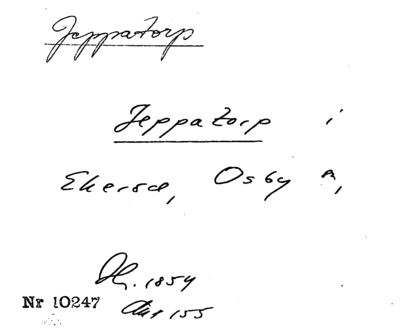 Jeppatorp
Jeppatorp i
Ekerså, Osby
1854
Nr 10247
155